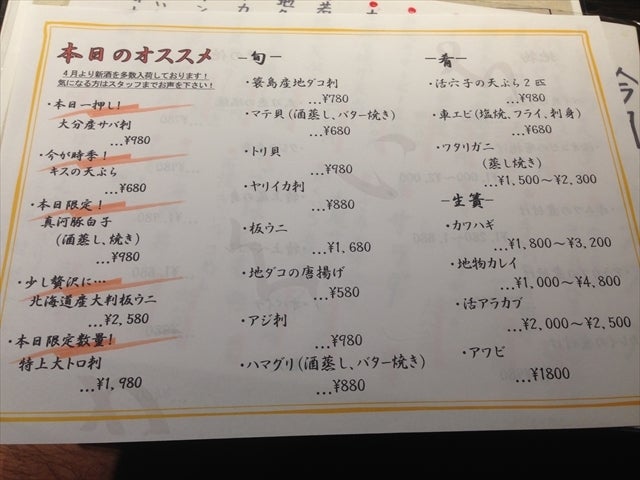 本日のオススメ
4月より新酒を多数入荷しております!
気になる方はスタッフまでお声を下さい!
・本日一押し!
大分産サバ刺
…¥980
・今が時季!
キスの天ぷら
…¥680
・本日限定!
真河豚白子
(酒蒸し、焼き)
…¥980
・少し贅沢に…
北海道産大判板ウニ
…¥2,580
・本日限定数量!
特上大トロ刺
…¥1,980
―旬―
・簑島産地ダコ刺
…¥780
・マテ貝(酒蒸し、バター焼き)
…¥680
・トリ貝
…¥980
・ヤリイカ刺
…¥880
・板ウニ
…¥1,680
・地ダコの唐揚げ
…¥580
・アジ刺
…¥980
・ハマグリ(酒蒸し、バター焼き)
…¥880
―肴―
・活穴子の天ぷら2匹
…¥980
・車エビ(塩焼、フライ、刺身)
…¥680
・ワタリガニ
(蒸し焼き)
…¥1,500～¥2,300
―生簀―
・カワハギ
…¥1,800～¥3,200
・地物カレイ
…¥1,000～¥4,800
・活アラカブ
…¥2,000～¥2,500
・アワビ
…¥1800